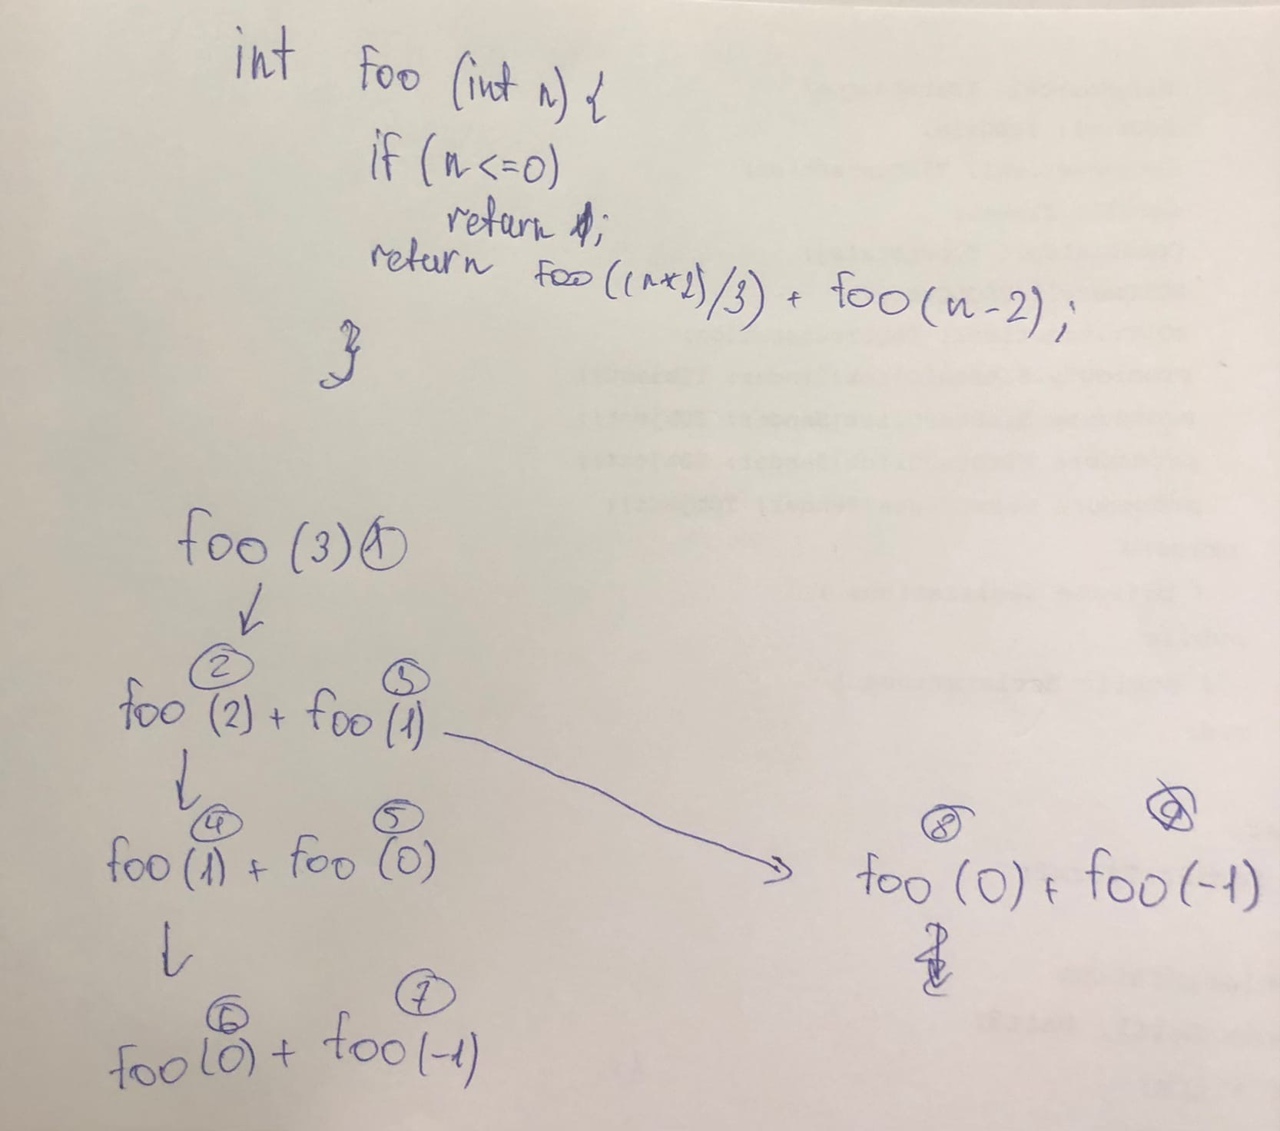 int foo (int n) {
if (n <= 0)
return 1;
return foo ((n*2)/3) + foo (n-2);
}
foo (3) 1
2 3
foo (2) + foo (1)
4 5
foo (1) + foo (0)
8 9
foo (0) + foo (-1)
6 7
foo (0) + foo (-1)